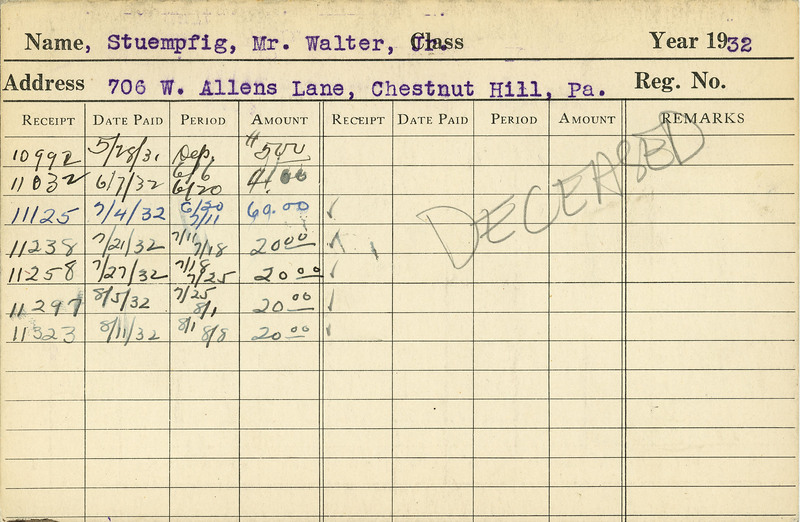 Name, Stuempfig, Mr. Walter, Jr. Class Year 1932
Address 706 W. Allens Lane, Chestnut Hill, Pa. Reg. No.
RECEIPT DATE PAID PERIOD AMOUNT RECEIPT DATE PAID PERIOD AMOUNT REMARKS
10992 5/28/31 Dep. $5.00
11032 6/7/32 6/6 6/20 41.00
11125 7/4/32 6/20 7/11 60.00 ✓
11238 7/21/32 7/11 7/18 20.00 ✓
11258 7/27/32 7/18 7/25 20.00 ✓
11297 8/5/32 7/25 8/1 20.00 ✓
11323 8/11/32 8/1 8/8 20.00 ✓
DECEASED